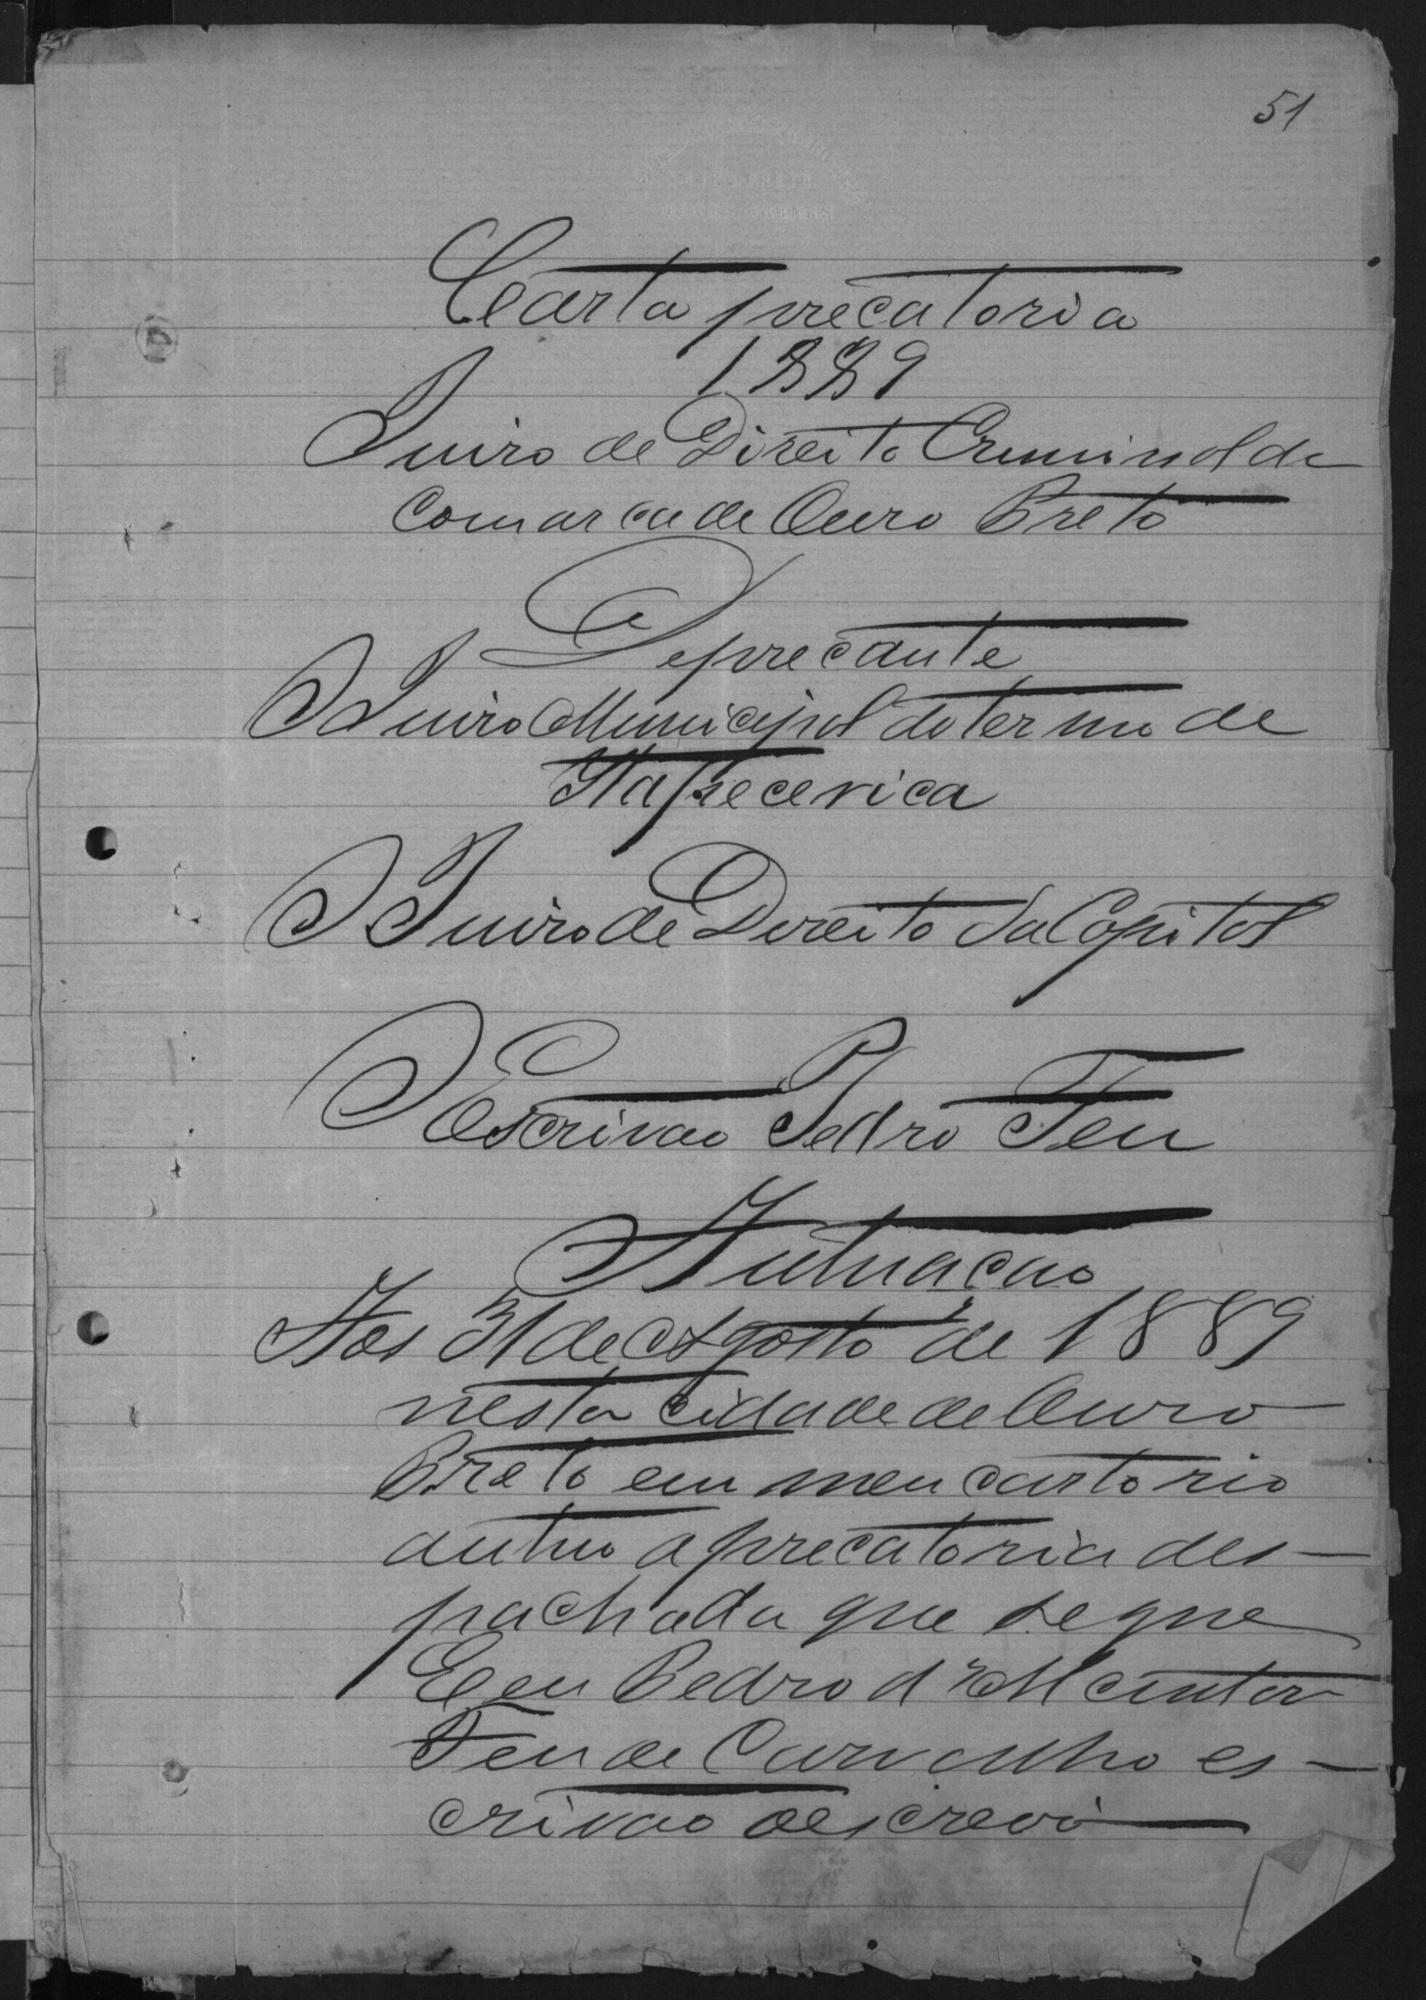 51
Carta precatoria
1889
Juizo de Direito Criminal da
Comarca de Ouro Preto
Deprecante
O Juizo Municipal do termo de
Itapecerica
O Juizo de Direito da Capital
O Escrivao Pedro Feu
Autuacao
Aos 31 de Agosto de 1889
nesta cidade de Ouro
Preto em meu cartorio
autuo a precatoria des-
pachada que segue
E eu Pedro d'Alcantar
Feu de Carvalho es-
crivao o escrevi